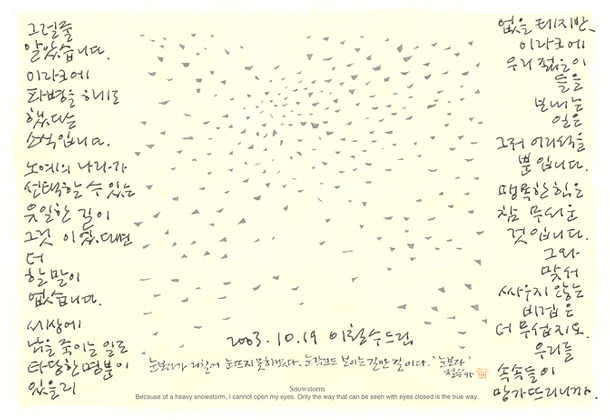 그럴줄
알았습니다.
이라크에
파병을 하기로
했다는
소식입니다.
노예의 나라가
선택할 수 있는
유일한 길이
그것 이었다면
더
할 말이
없습니다.
세상에
남을 죽이는 일로
타당한 명분이
있을리
없을 테지만.
이라크에
우리 젊은이
들을
보내는
일은
그저 어리석을
뿐입니다.
맹목한 힘은
참 무서운
것입니다.
그와
맞서
싸우지 않는
비겁은
더 무섭지요.
우리들
속속들이
망가뜨리니까.
2003.10.19 이철수드림
눈보라가 거칠어 눈 뜨지 못하겠다. 눈 감고도 보이는 길만 길이다. '눈보라'
Snowstorm
Because of a heavy snowstorm, I cannot open my eyes. Only the way that can be seen with eyes closed is the true way.